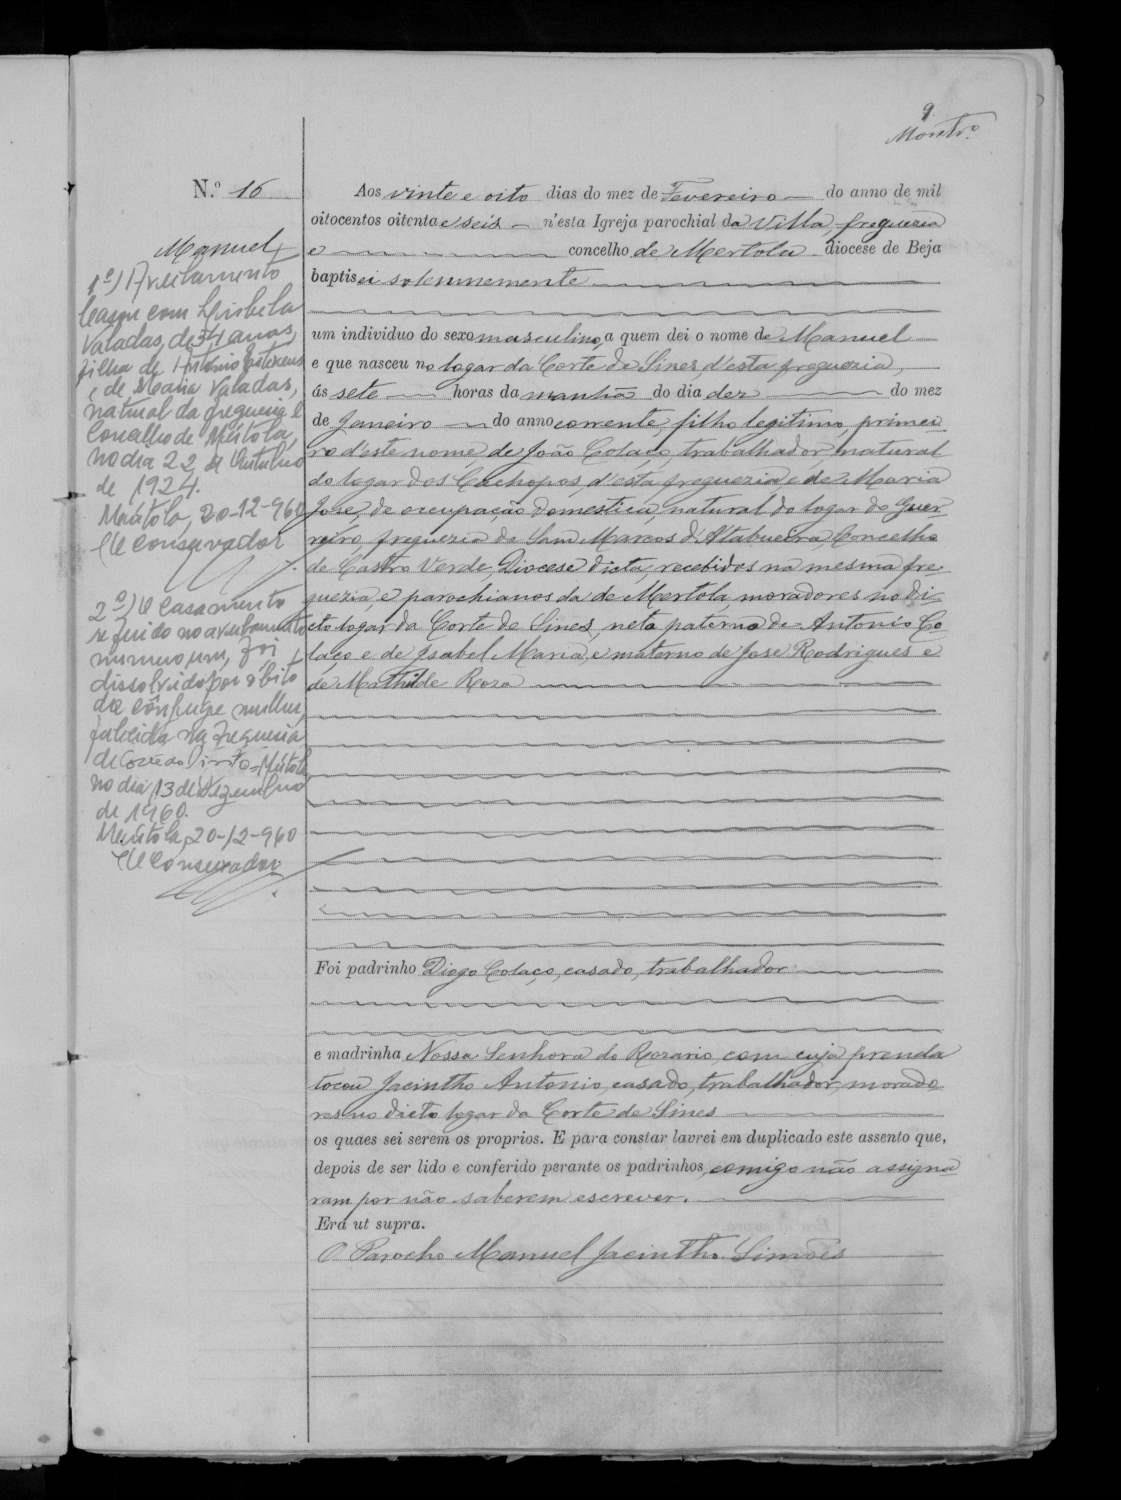 9
N.º 16
Manuel
1º) Averbamento
Casou com
Valadas, de 34 anos,
filha de António
e de Maria Valadas,
natural da freguesia e
Concelho de Mértola,
no dia 22 de Outubro
de 1924.
Mértola, 20-12-960
O Conservador
2º) O casamento
referido no averbamento
numero um, foi
dissolvido por óbito
do cônjuge mulher,
falecida na freguesia
de Corte do Pinto-Mértola
no dia 13 de Dezembro
de 1960.
Mértola, 20-12-960
O Conservador
Aos vinte e oito dias do mez de Fevereiro do anno de mil
oitocentos oitenta e seis n'esta Igreja parochial da Villa, freguezia
e concelho de Mertola diocese de Beja
baptisei solemnemente
um individuo do sexo masculino, a quem dei o nome de Manuel
e que nasceu no logar da Corte de Sines, d'esta freguezia,
ás sete horas da manhã do dia dez do mez
de Janeiro do anno corrente, filho legitimo, primei-
ro d'este nome, de João Colaço, trabalhador, natural
do logar dos Cachopos, d'esta freguezia e de Maria
José, de occupação domestica, natural do logar do Guer-
reiro, freguezia de Sam Marcos d'Atabueira, Concelho
de Castro Verde, Diocese dicta, recebidos na mesma fre-
guezia, e parochianos da de Mertola, moradores no di-
cto logar da Corte de Sines, neto paterno de Antonio Co-
laço e de Isabel Maria, e materno de José Rodrigues e
de Mathilde Roza
Foi padrinho Diogo Colaço, casado, trabalhador
e madrinha Nossa Senhora do Rozario, com cuja prenda
tocou Jacintho Antonio, casado, trabalhador, morado-
res no dicto logar da Corte de Sines
os quaes sei serem os proprios. E para constar lavrei em duplicado este assento que,
depois de ser lido e conferido perante os padrinhos, comigo não assigna-
ram por não saberem escrever.
Era ut supra.
O Parocho Manuel Jacintho Simões